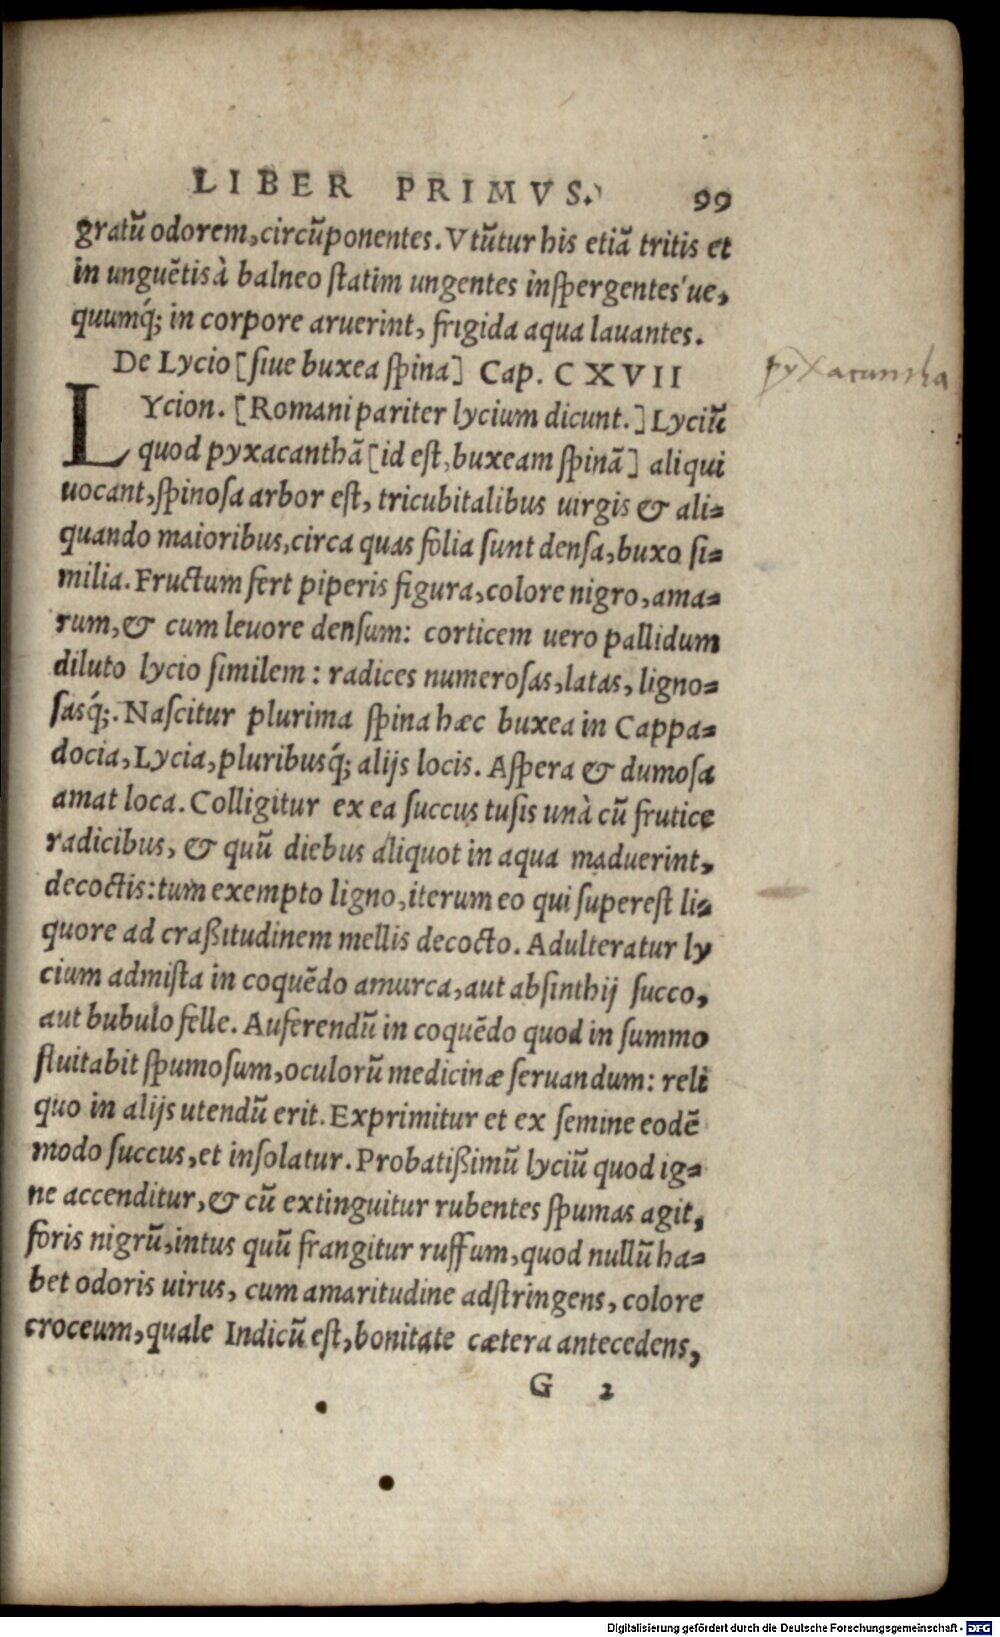 LIBER PRIMVS. 99
gratū odorem, circūponentes. Vtūtur his etiā tritis et
in unguētis à balneo statim ungentes inspergentes'ue,
quumq́; in corpore aruerint, frigida aqua lauantes.
De Lycio [siue buxea spina] Cap. CXVII
pyxacantha
LYcion. [Romani pariter lycium dicunt.] Lyciū
quod pyxacanthā [id est, buxeam spinā] aliqui
uocant, spinosa arbor est, tricubitalibus uirgis & ali=
quando maioribus, circa quas folia sunt densa, buxo si=
milia. Fructum fert piperis figura, colore nigro, ama=
rum, & cum leuore densum: corticem uero pallidum
diluto lycio similem: radices numerosas, latas, ligno=
sasq́;. Nascitur plurima spina hæc buxea in Cappa=
docia, Lycia, pluribusq́; alijs locis. Aspera & dumosa
amat loca. Colligitur ex ea succus tusis unà cū frutice
radicibus, & quū diebus aliquot in aqua maduerint,
decoctis: tum exempto ligno, iterum eo qui superest li=
quore ad craßitudinem mellis decocto. Adulteratur ly
cium admista in coquēdo amurca, aut absinthij succo,
aut bubulo felle. Auferendū in coquēdo quod in summo
fluitabit spumosum, oculorū medicinæ seruandum: reli
quo in alijs utendū erit. Exprimitur et ex semine eodē
modo succus, et insolatur. Probatißimū lyciū quod ig=
ne accenditur, & cū extinguitur rubentes spumas agit,
foris nigrū, intus quū frangitur ruffum, quod nullū ha=
bet odoris uirus, cum amaritudine adstringens, colore
croceum, quale Indicū est, bonitate cætera antecedens,
G 2
Digitalisierung gefördert durch die Deutsche Forschungsgemeinschaft - DFG